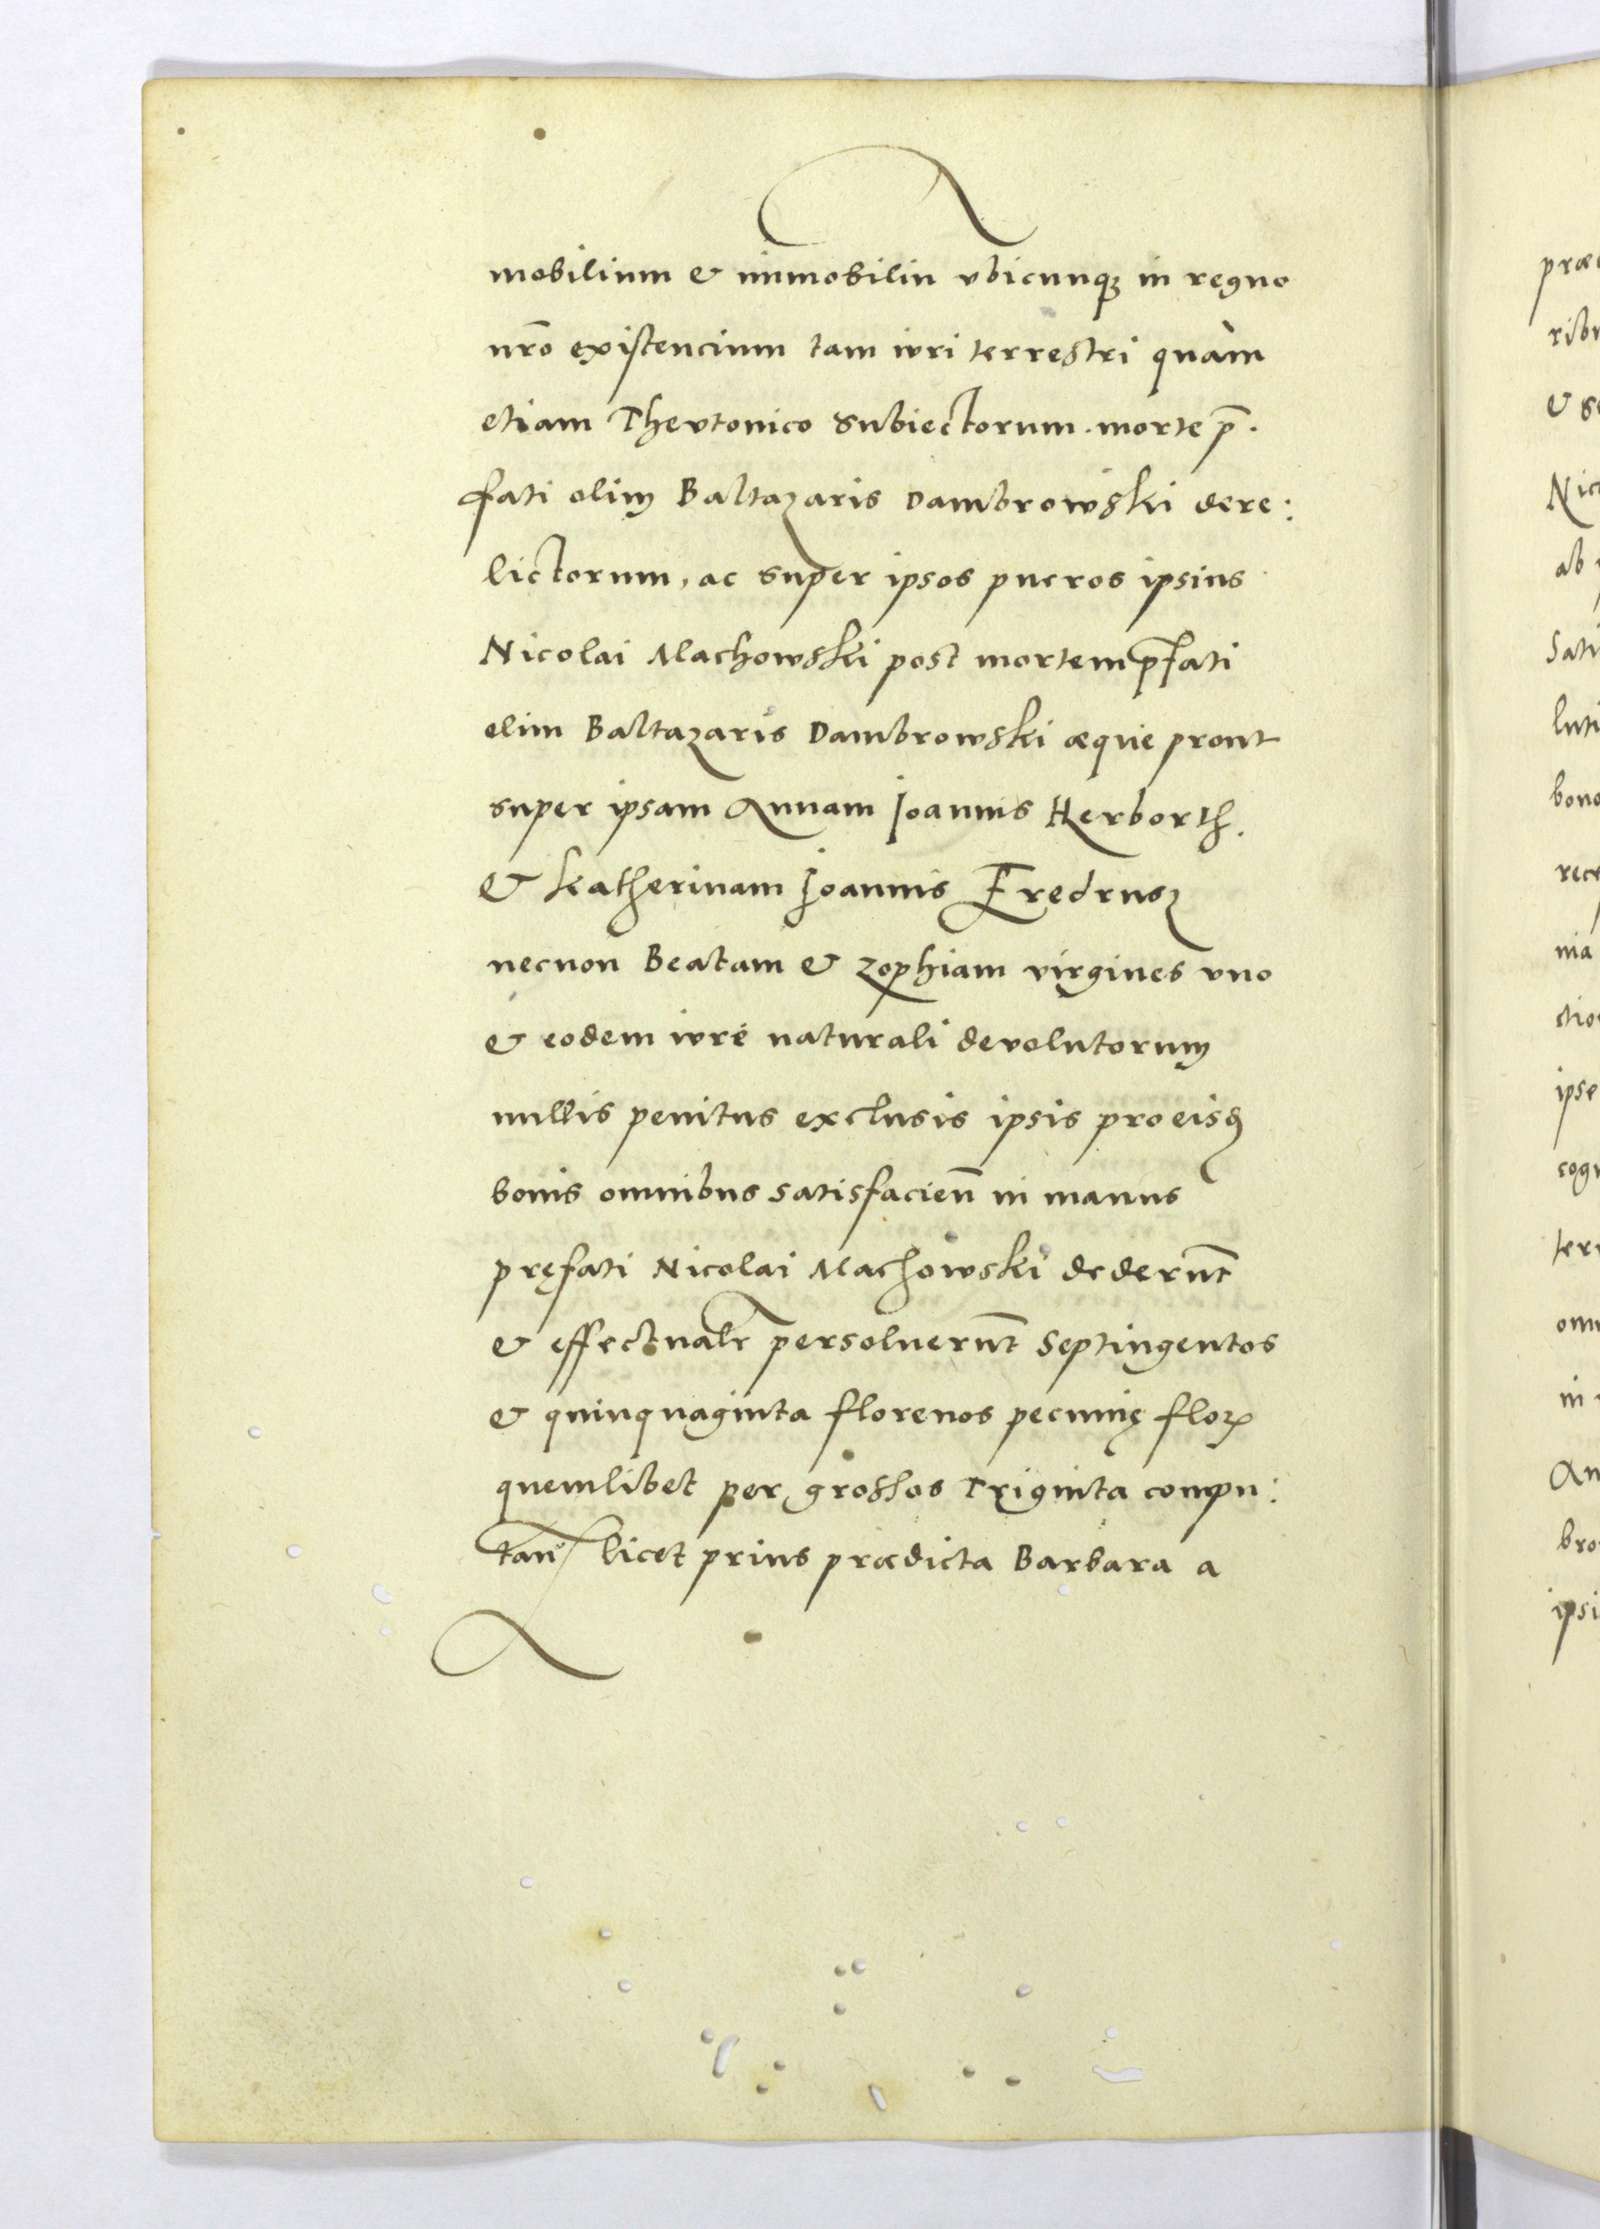 mobilium & immobiliu vbicunqꝫ in regno
nr̃o existencium tam iuri terrestri quàm
etiam Theutonico Subiectorum. morte p̄.
fati olim Baltazaris Dambrowski dere:
lictorum, ac super ipsos pueros ipsius
Nicolai Machowski post mortem p̄fati
olim Baltazaris Dambrowski æque prout
super ipsam Annam Joannis Herborth.
& Katherinam Joannis Fredrusz
necnon Beatam & Zophiam virgines vno
& eodem iure naturali deuolutorum
nullis penitus exclusis ipsis pro eisdꝫ
bonis omnibus satisfacien̄ in manus
pręfati Nicolai Machowski dederūt
& effectualr̃ persoluerūt Septingentos
& quinquaginta florenos pecunię floꝝ
quemlibet per grossos Triginta compu:
tan̄ licet prius prædicta Barbara a
præ
ribu
& s
Nic
ab
Sati
luti
bono
rece
nia
ctio
ipse
cogn
terr
omn
in
An
bro
ipsi